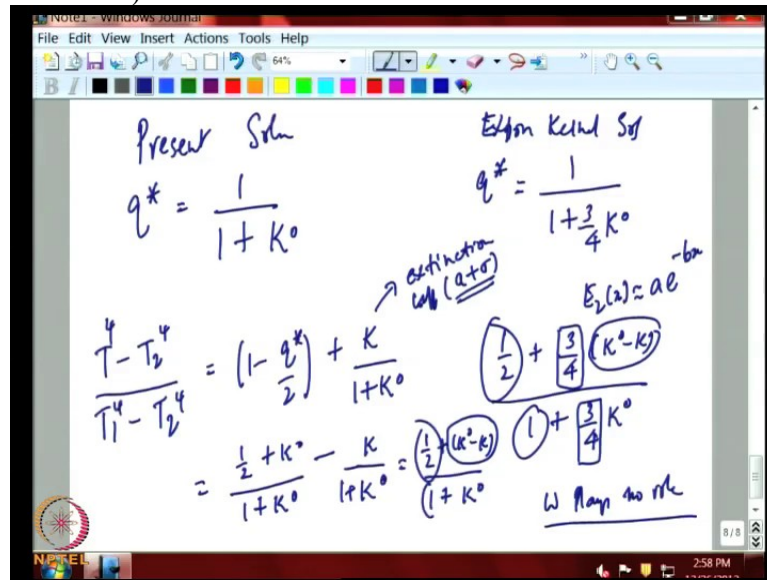 Note1 - Windows Journal
File Edit View Insert Actions Tools Help
64%
B I
Present Soln
Expon Kernel Sol
q* = 1 / (1 + K°)
q* = 1 / (1 + 3/4 K°)
extinction
(a+σ)
E₂(x) ≈ a e^-bx
(T⁴ - T₂⁴) / (T₁⁴ - T₂⁴) = (1 - q*/2) + K / (1+K°)
(1/2 + 3/4 (K° - K)) / (1 + 3/4 K°)
= (1/2 + K°) / (1 + K°) - K / (1+K°) = (1/2 + (K° - K)) / (1 + K°)
ω Plays no role
8/8
NPTEL
2:58 PM